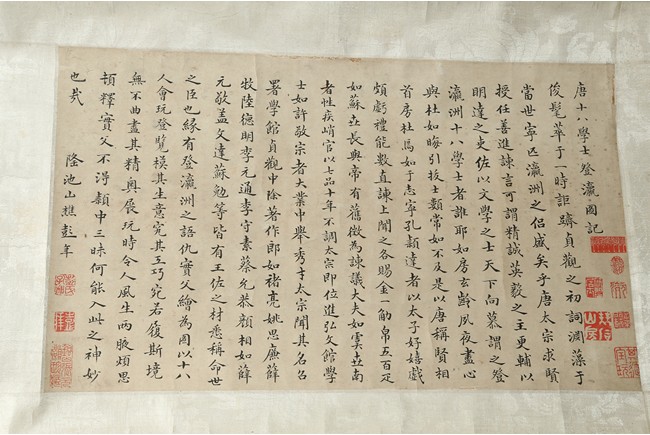 唐十八學士登瀛圖記
俊髦萃于一時詎躋貞觀之初詞瀾藻于
當世寧匹瀛洲之侶盛矣乎唐太宗求賢
授任善進諫言可謂精誠英毅之主更輔以
明達之吏佐以文學之士天下向慕謂之登
瀛洲十八學士者誰耶如房玄齡夙夜盡心
與杜如晦引拔士類常如不及是以唐稱賢相
首房杜焉如于志寧孔穎達者以太子好嬉戲
頗虧禮能數直諫上聞之各賜金一觔帛五百疋
如蘇世長與帝有舊徵為諫議大夫如虞世南
者性疾峭官以七品十年不調太宗即位進弘文館學
士如許敬宗者大業中舉秀才太宗聞其名召
署學館貞觀中除著作郎如褚亮姚思廉薛
牧陸德明李元通李守素蔡允恭顏相如薛
元敬蓋文達蘇勉等皆有王佐之材悉稱命世
之臣也緣有登瀛洲之語仇實父繪為圖以十八
人會玩登覽模其生意究其工巧宛若復斯境
無不曲盡其精奧展玩時令人風生两腋煩思
頓釋實父不得顏中三昧何能入此之神妙
也哉 隆池山樵彭年